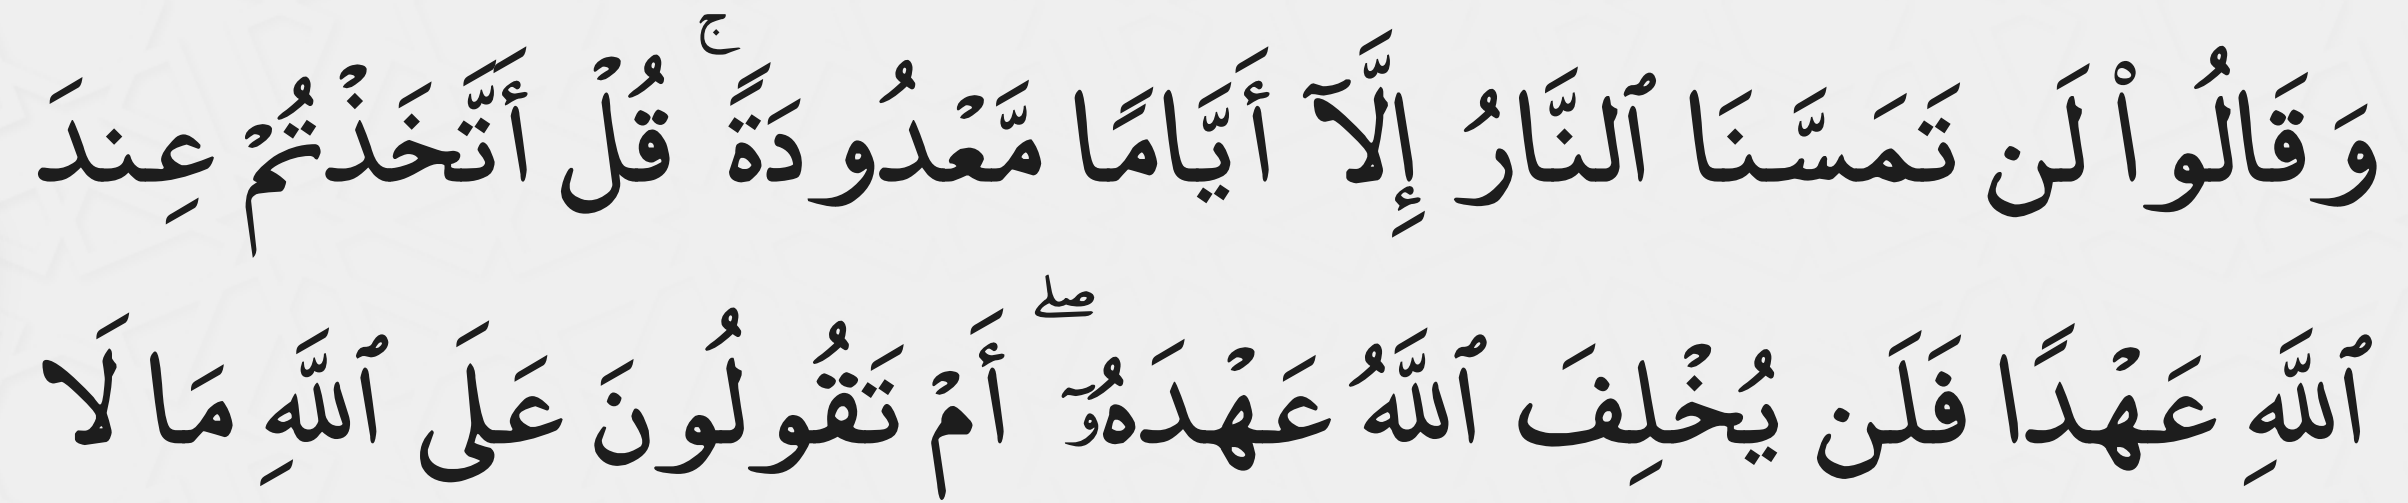 وَقَالُوا۟ لَن تَمَسَّنَا ٱلنَّارُ إِلَّآ أَيَّامًا مَّعْدُودَةً ۚ قُلْ أَتَّخَذْتُمْ عِندَ
ٱللَّهِ عَهْدًا فَلَن يُخْلِفَ ٱللَّهُ عَهْدَهُۥٓ ۖ أَمْ تَقُولُونَ عَلَى ٱللَّهِ مَا لَا